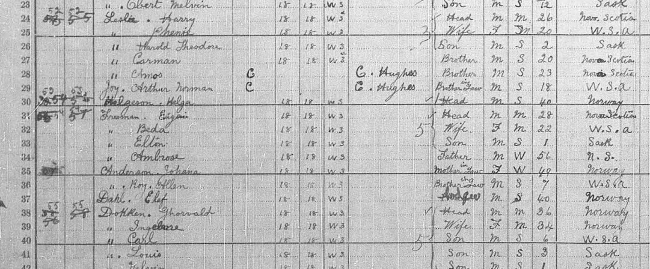 23 " . Obert Melvin 18 18 W 3 Son M S 12 Sask
24 Leslie . Harry 18 18 W 3 Head M M 26 Nova Scotia
25 " 18 18 W 3 Wife F M 20 U.S.A
26 " Harold Theodore 18 18 W 3 Son M S 2 Sask
27 " Carman 18 18 W 3 Brother M S 20 Nova Scotia
28 " Amos C C. Hughes Brother M S 23 Nova Scotia
29 Joy . Arthur Norman C C. Hughes Brother Law M S 18 U.S.A
30 Helgeson . Helga 18 18 W 3 Head M S 40 Norway
31 Freeman . 18 18 W 3 Head M M 28 Nova Scotia
32 " Beda 18 18 W 3 Wife F M 22 U.S.A
33 " Elton 18 18 W 3 Son M S 1 Sask
34 " Ambrose 18 18 W 3 Father M W 56 N.S.
35 Anderson Johana 18 18 W 3 Mother in Law F W 49 Norway
36 " . Roy. Allen 18 18 W 3 Brother Law M S 7 U.S.A
37 Dahl . Elef 18 18 W 3 M S 40 Norway
38 Dokken . Thorvald 18 18 W 3 Head M M 36 Norway
39 " 18 18 W 3 Wife F M 34 Norway
40 " Carl 18 18 W 3 Son M S 6 U.S.A
41 " Louis 18 18 W 3 Son M S 3 Sask
42 18 18 W 3 Son M S 1 Sask